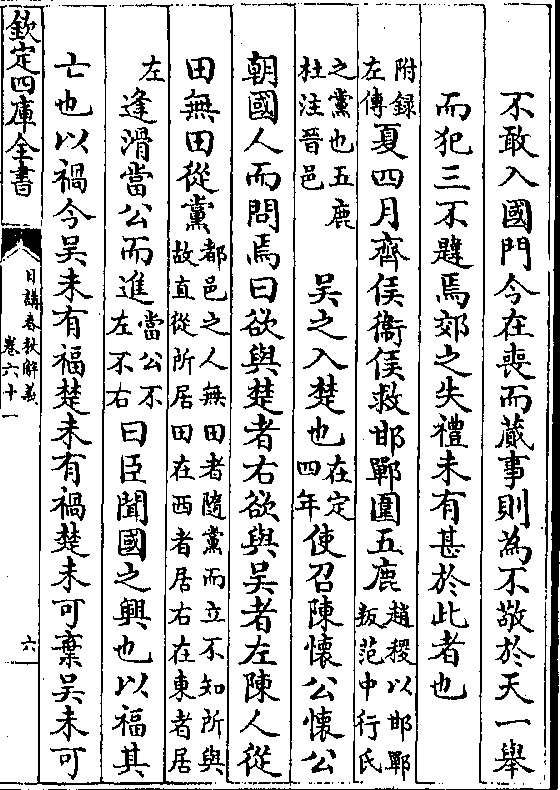 不敢入國門今在喪而蕆事則為不敬於天一舉
而犯三不韙焉郊之失禮未有甚於此者也
附録
左傳
夏四月齊侯衞侯救邯鄲圍五鹿
趙稷以邯鄲
叛范中行氏
之黨也五鹿
杜注晉邑
吳之入楚也
在定
四年
使召陳懷公懷公
朝國人而問焉曰欲與楚者右欲與吳者左陳人從
田無田從黨
都邑之人無田者隨黨而立不知所與
故直從所居田在西者居右在東者居
左
逢滑當公而進
當公不
左不右
曰臣聞國之興也以福其
亡也以禍今吳未有福楚未有禍楚未可棄吳未可
欽定四庫全書
日講春秋解義
卷六十一
六